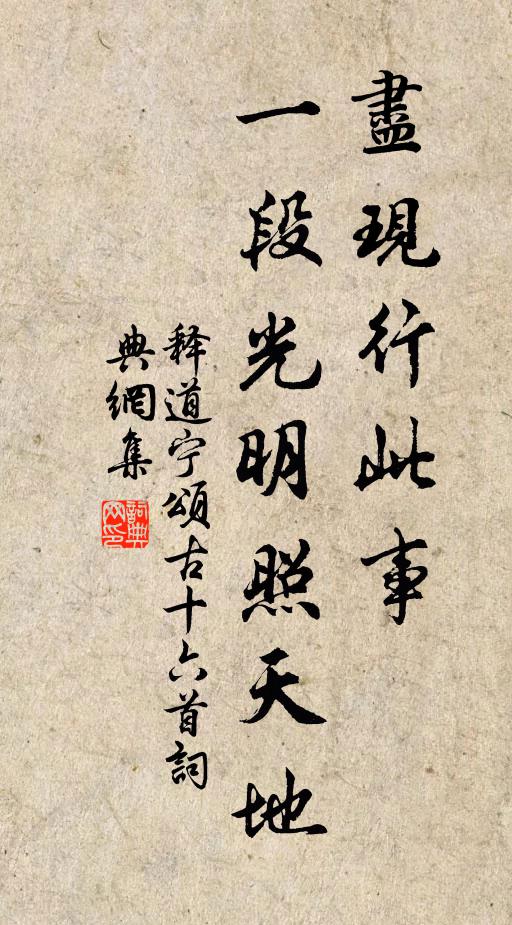 盡現行此事
一段光明照天地
释道宁頌古十六首詞
典網集
詞典
网印